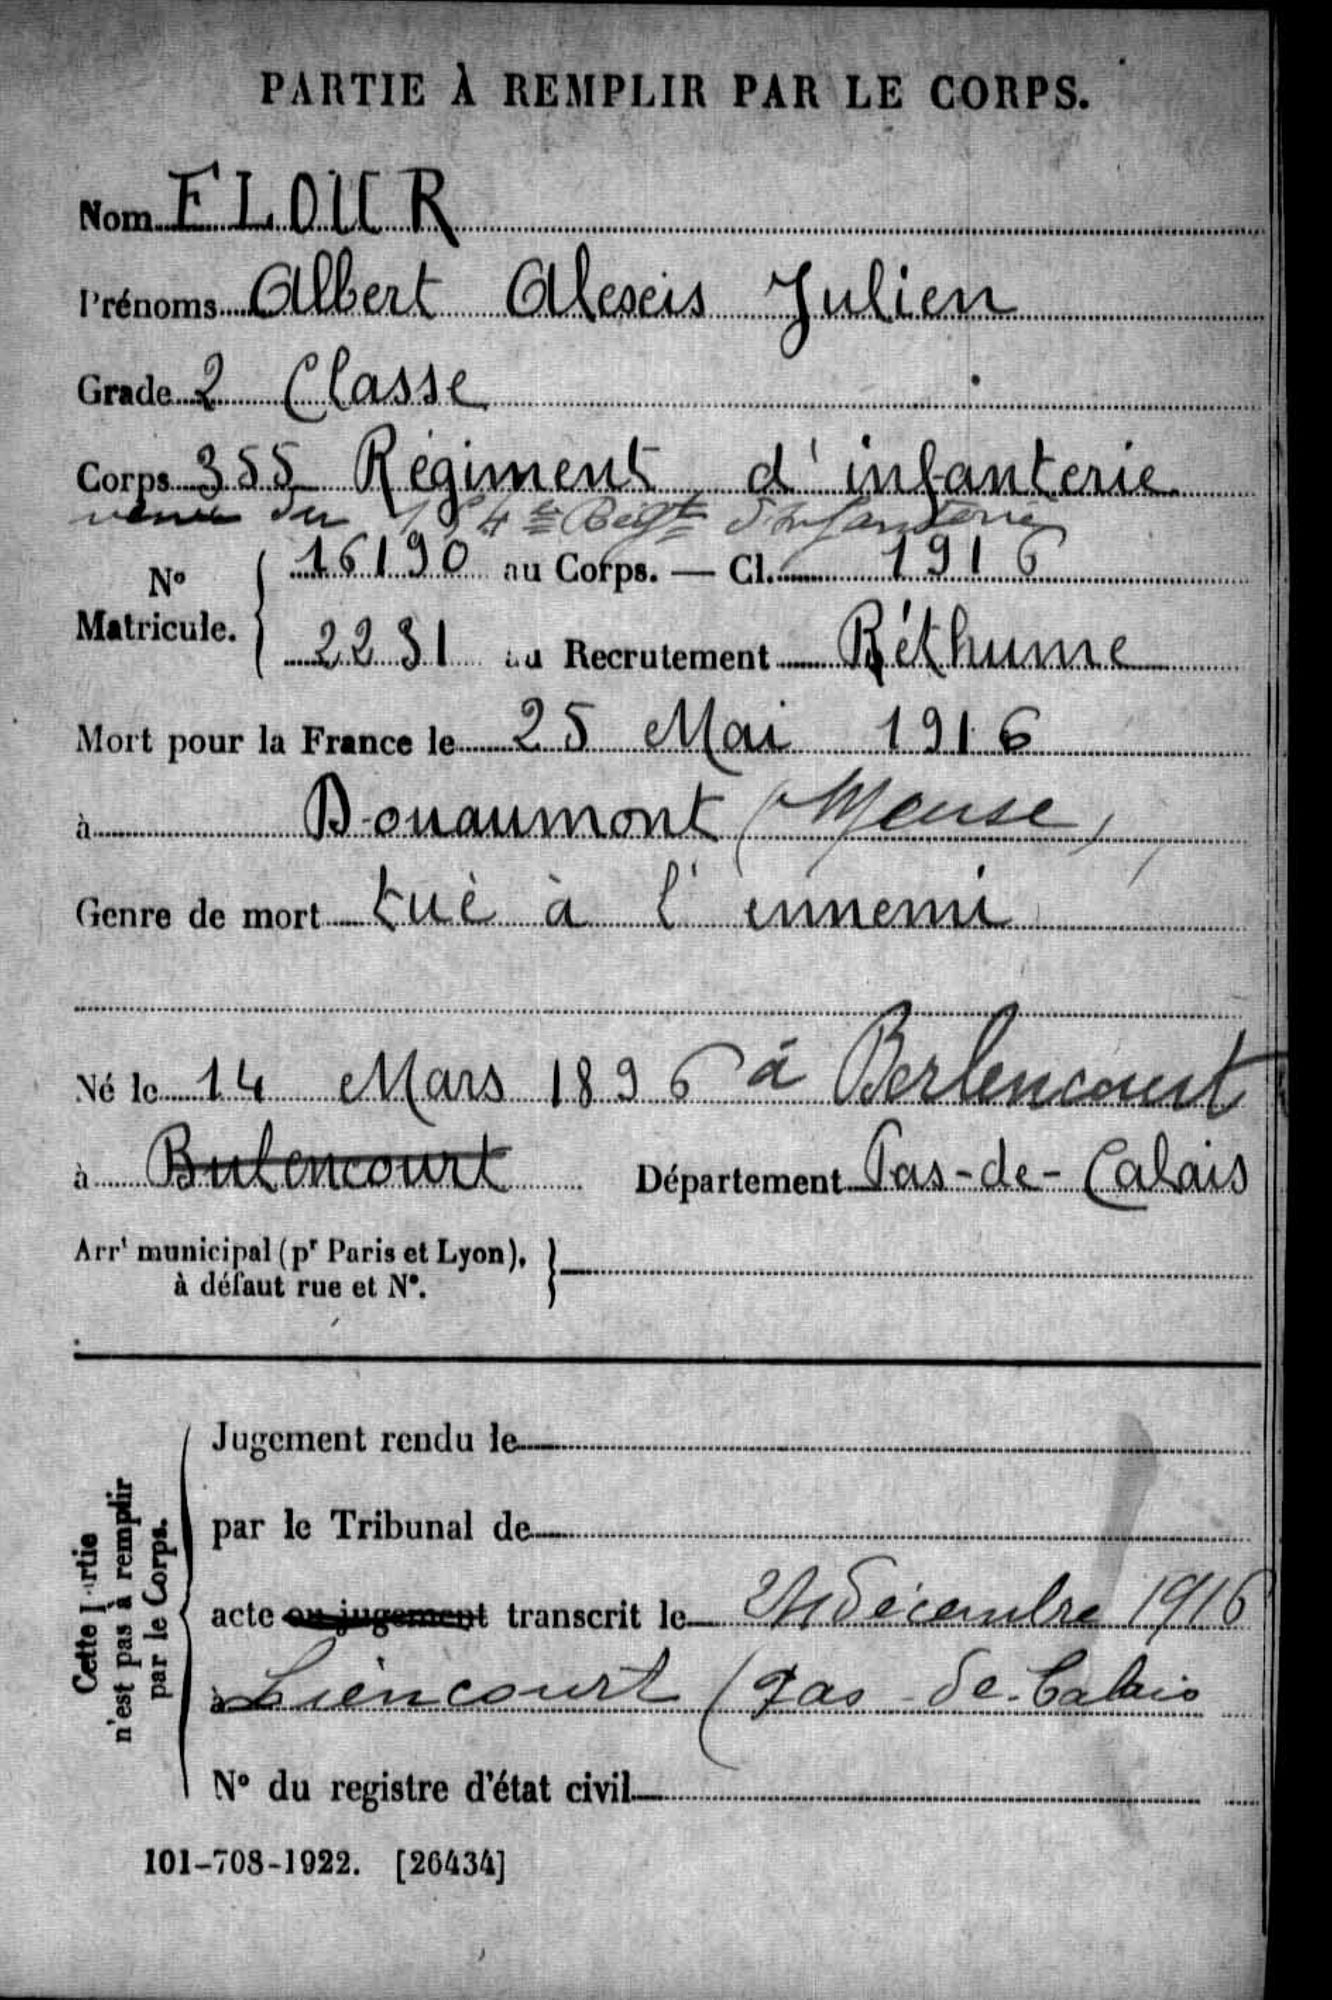 PARTIE À REMPLIR PAR LE CORPS.
Nom FLOUR
Prénoms Albert Alexis Julien
Grade 2 Classe
Corps 355 Régiment d'infanterie
venu du 154e Régt d'Infanterie
N° Matricule. { 16190 au Corps. — Cl. 1916
2231 au Recrutement Béthune
Mort pour la France le 25 Mai 1916
à Douaumont (Meuse)
Genre de mort tué à l'ennemi
Né le 14 Mars 1896 à Berlencourt
à Bulencourt Département Pas-de-Calais
Arrt municipal (pr Paris et Lyon),
à défaut rue et N°.
Cette partie
n'est pas à remplir
par le Corps.
Jugement rendu le
par le Tribunal de
acte ou jugement transcrit le décembre 1916
à Liencourt (Pas-de-Calais
N° du registre d'état civil
101-708-1922. [26434]